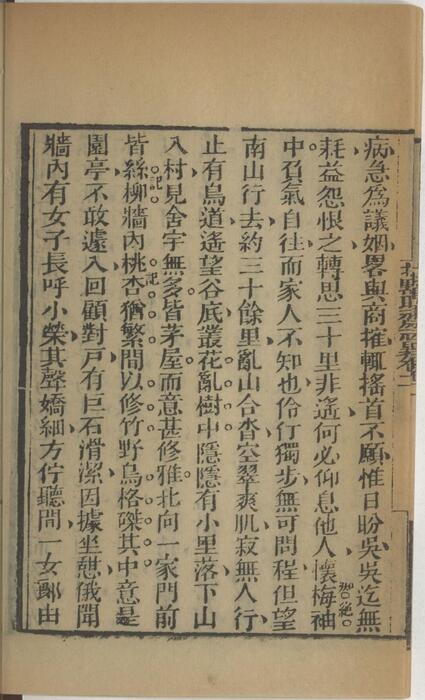 病急爲議姻畧與商搉輒搖首不願惟日盼吳吳迄無
耗益怨恨之轉思三十里非遙何必仰息他人懷梅袖
中負氣自往而家人不知也伶仃獨步無可問程但望
南山行去約三十餘里亂山合沓空翠爽肌寂無人行
止有鳥道遙望谷底叢花亂樹中隱隱有小里落下山
入村見舍宇無多皆茅屋而意甚修雅北向一家門前
皆絲柳牆內桃杏猶繁間以修竹野鳥格磔其中意是
園亭不敢遽入回顧對戶有巨石滑潔因據坐憩俄聞
牆內有女子長呼小榮其聲嬌細方佇聽間一女郎由